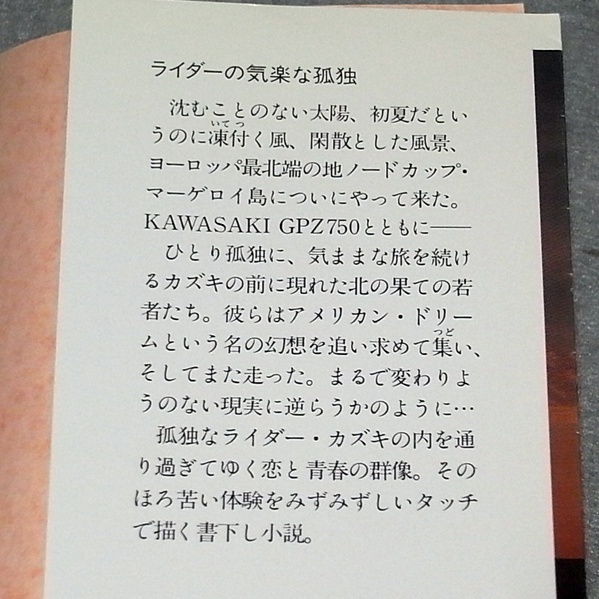 ライダーの気楽な孤独
沈むことのない太陽、初夏だとい
うのに凍付く風、閑散とした風景、
いてつ
ヨーロッパ最北端の地ノードカップ・
マーゲロイ島についにやって来た。
KAWASAKI GPZ750とともに──
ひとり孤独に、気ままな旅を続け
るカズキの前に現れた北の果ての若
者たち。彼らはアメリカン・ドリー
ムという名の幻想を追い求めて集い、
つど
そしてまた走った。まるで変わりよ
うのない現実に逆らうかのように…
孤独なライダー・カズキの内を通
り過ぎてゆく恋と青春の群像。その
ほろ苦い体験をみずみずしいタッチ
で描く書下し小説。